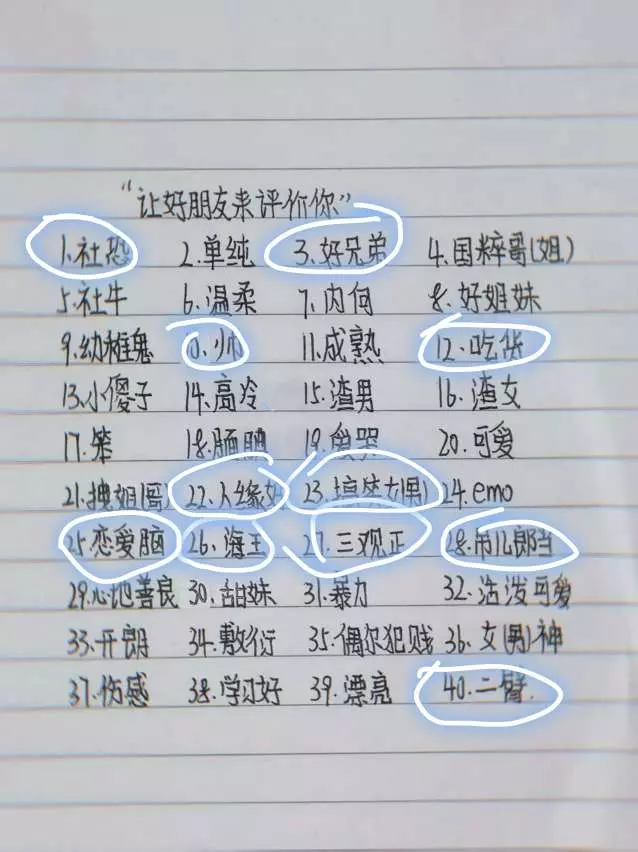 “让好朋友来评价你”
1.社恐 2.单纯 3.好兄弟 4.国粹哥(姐)
5.社牛 6.温柔 7.内向 8.好姐妹
9.幼稚鬼 10.帅 11.成熟 12.吃货
13.小傻子 14.高冷 15.渣男 16.渣女
17.笨 18.腼腆 19.爱哭 20.可爱
21.拽姐(哥) 22.人缘好 23.搞笑女(男) 24.emo
25.恋爱脑 26.海王 27.三观正 28.吊儿郎当
29.心地善良 30.甜妹 31.暴力 32.活泼可爱
33.开朗 34.敷衍 35.偶尔犯贱 36.女(男)神
37.伤感 38.学习好 39.漂亮 40.二臂.